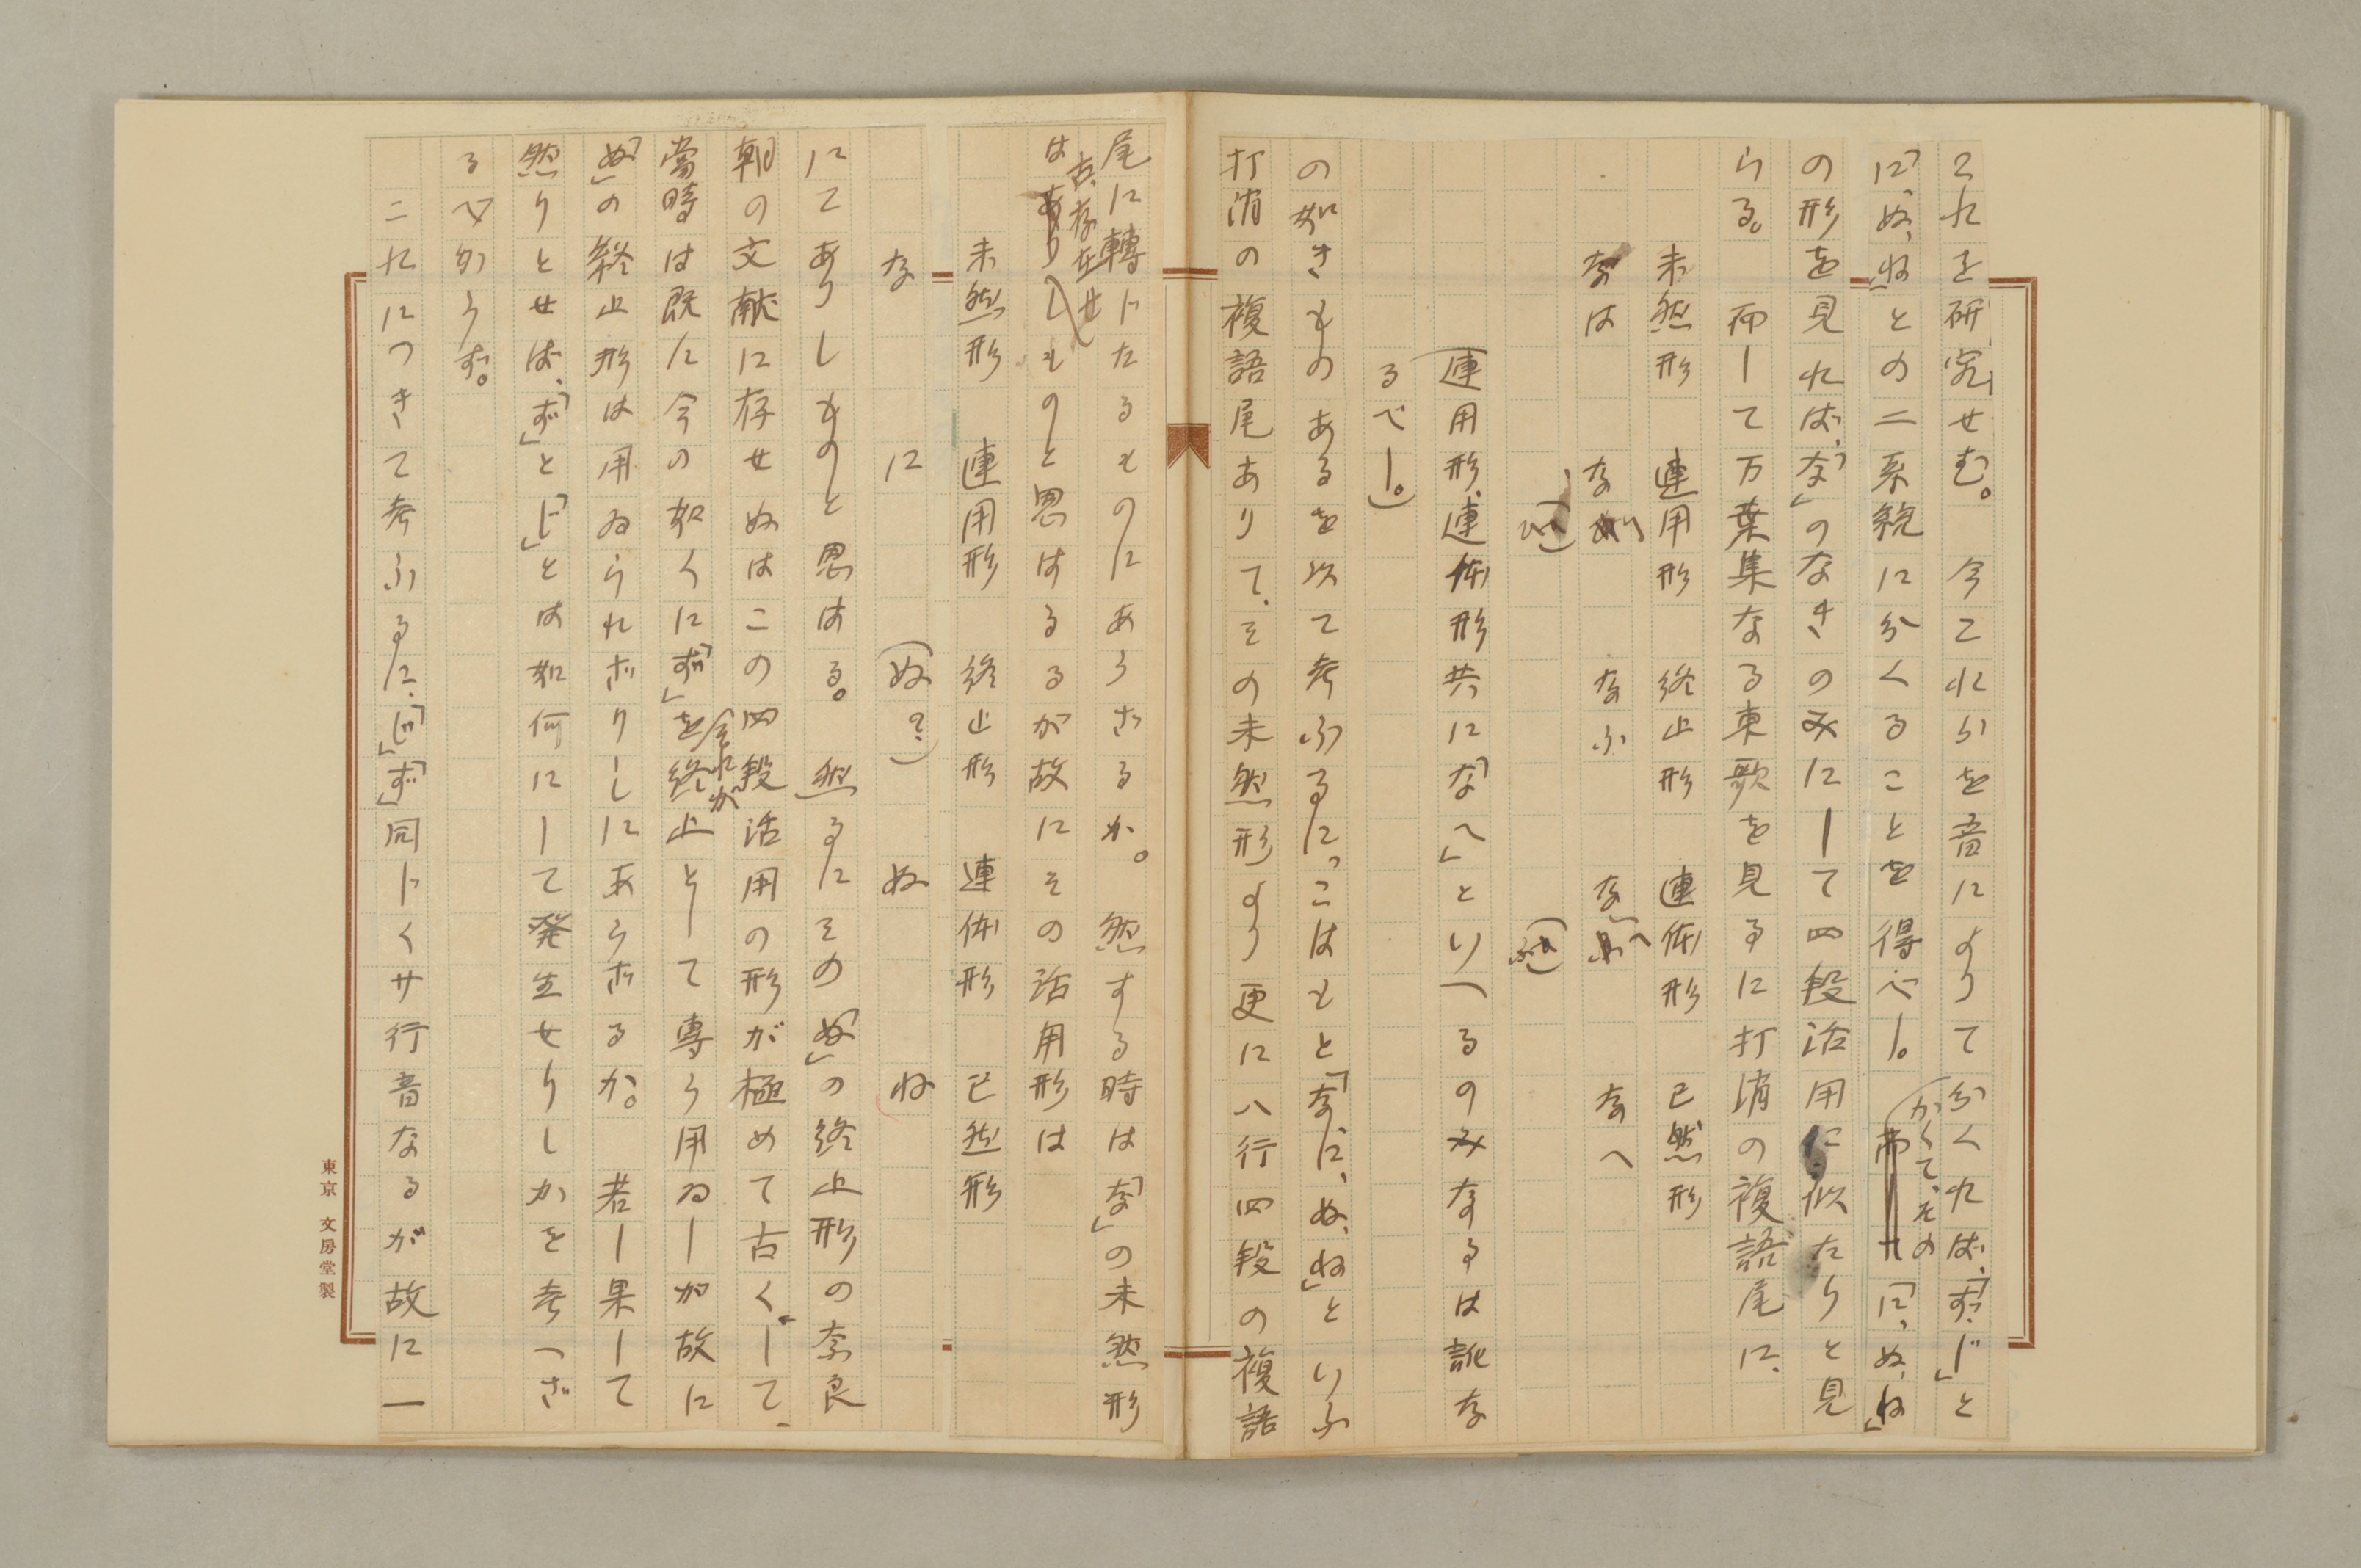 これを研究せむ。　今これらを音によりて分くれば、「ず、じ」と
「に、ぬ、ね」との二系統に分くることを得べし。かくて、その「に、ぬ、ね」
の形を見れば、「な」のなきのみにして四段活用に似たりと見
らる。　而して万葉集なる東歌を見るに打消の複語尾に、
未然形　連用形　終止形　連体形　已然形
なは　な　なふ　なへ　なへ
連用形、連体形共に「なへ」といへるのみなるは訛な
るべし。）
の如きものあるを以て考ふるに、こはもと「な、に、ぬ、ね」といふ
打消の複語尾ありて、その未然形より更にハ行四段の複語
尾に轉じたるものにあらざるか。　然する時は「な」の未然形
は古、存在せしものと思はるるが故にその活用形は
未然形　連用形　終止形　連体形　已然形
な　に　（ぬ？）　ぬ　ね
にてありしものと思はる。　然るにその「ぬ」の終止形の奈良
朝の文献に存せぬはこの四段活用の形が極めて古くして、
當時は既に今の如くに「ず」を終止として専ら用ゐしが故に
「ぬ」の終止形は用ゐられざりしにあらざるか。　若し果して
然りとせば、「ず」と「じ」とは如何にして発生せりしかを考へざ
るべからず。
これにつきて考ふるに、「じ」「ず」同じくサ行音なるが故に一
東京 文房堂製